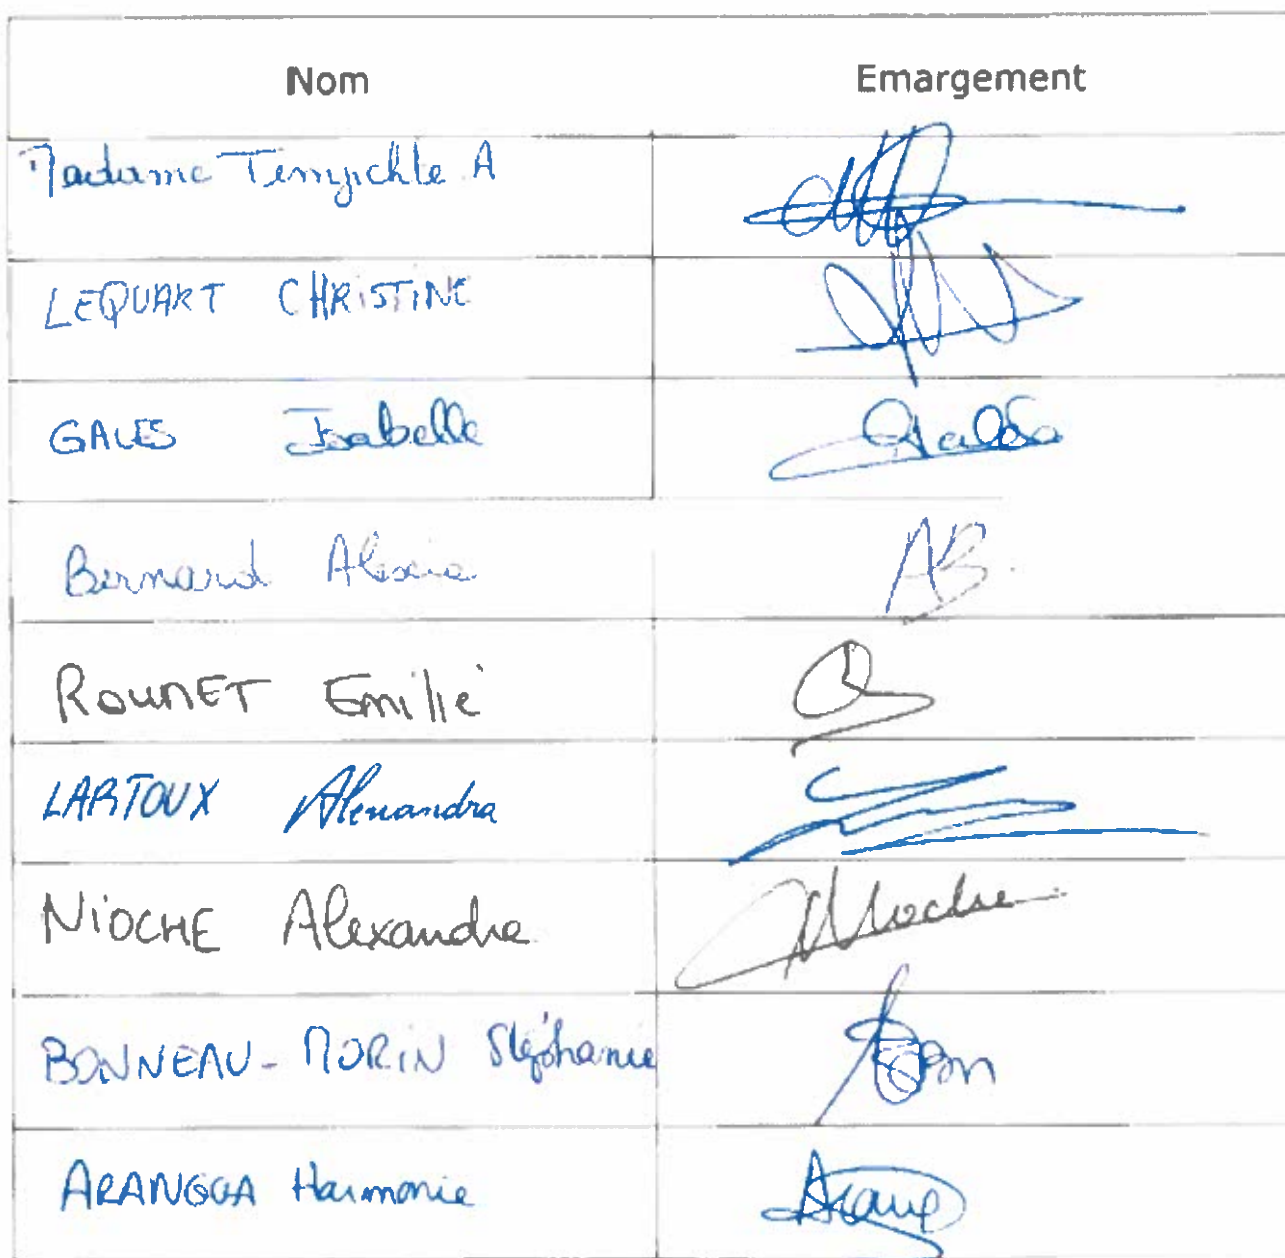 Nom Emargement
Madame A
LEQUART CHRISTINE
GALES Isabelle
Bernard Alexia AB.
ROUMET Emilie
LARTOUX Alexandra
NIOCHE Alexandra Nioche
BONNEAU-MORIN Stéphanie
Harmonie